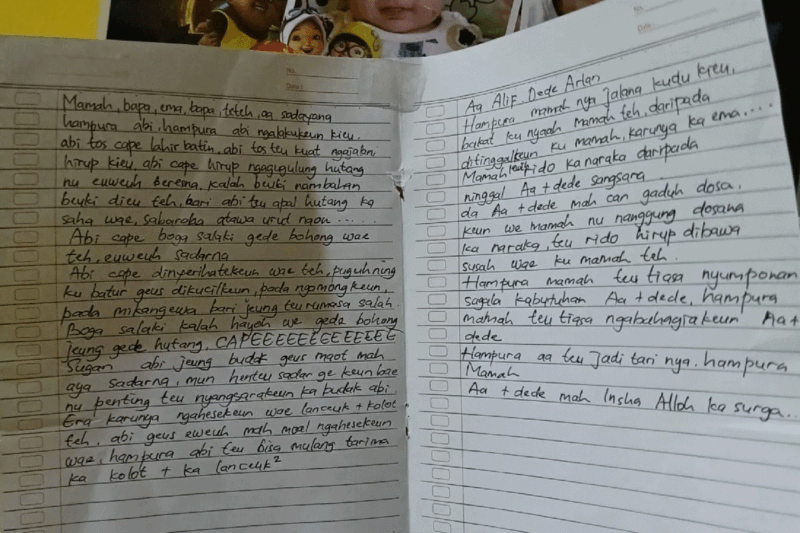 No.
Date:
Mamah, bapa, ema, bapa, teteh, aa sadayana
hampura abi, hampura abi ngalakukeun kieu,
abi tos cape lahir batin, abi tos teu kuat ngajalani
hirup kieu, abi cape hirup ngagugulung hutang
nu euweuh berena, kalah beuki nambahan
beuki dieu teh, bari abi teu apal hutang ka
saha wae, sabaraha atawa urut naon ......
Abi cape boga salaki gede bohong wae
teh, euweuh sadarna
Abi cape dinyerihatekeun wae teh, puguh ning
ku batur geus dikucilkeun, pada ngomongkeun,
pada mikangewa bari jeung teu rumasa salah.
Boga salaki kalah hayoh we gede bohong
jeung gede hutang, CAPEEEEEEEEEEEEEE
Sugan abi jeung budak geus maot mah
aya sadarna, mun henteu sadar ge keun bae
nu penting teu nyangsarakeun ka budak abi.
Era karunya ngahesekeun wae lanceuk + kolot
teh. abi geus eweuh mah moal ngahesekeun
wae, hampura abi teu bisa mulang tarima
ka kolot + ka lanceuk²
No.
Date:
Aa Alif Dede Arlan
Hampura mamah nya jalana kudu kieu,
bakat ku nyaah mamah teh, daripada
ditinggalkeun ku Mamah, karunya ka ema....
Mamah leuih rido ka naraka daripada
ninggal Aa + dede sangsara
da Aa + dede mah can gaduh dosa.
keun we mamah nu nanggung dosana
ka naraka, teu rido hirup dibawa
susah wae ku mamah teh.
Hampura mamah teu tiasa nyumponan
sagala kabutuhan Aa + dede, hampura
mamah teu tiasa ngabahagiakeun Aa +
dede
Hampura aa teu jadi tari nya. hampura
Mamah
Aa + dede mah Insha Alloh ka surga...